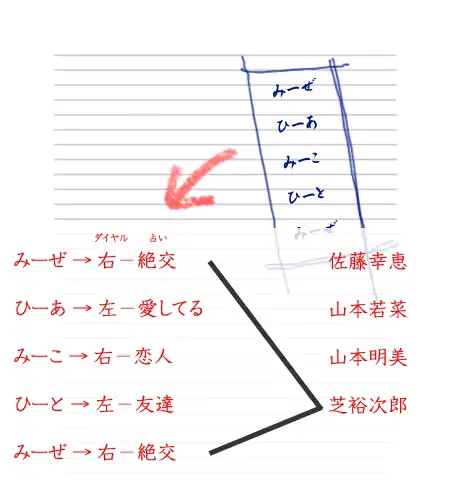 みーぜ
ひーあ
みーこ
ひーと
みーぜ
ダイヤル 占い
みーぜ→右－絶交
ひーあ→左－愛してる
みーこ→右－恋人
ひーと→左－友達
みーぜ→右－絶交
佐藤幸恵
山本若菜
山本明美
芝裕次郎